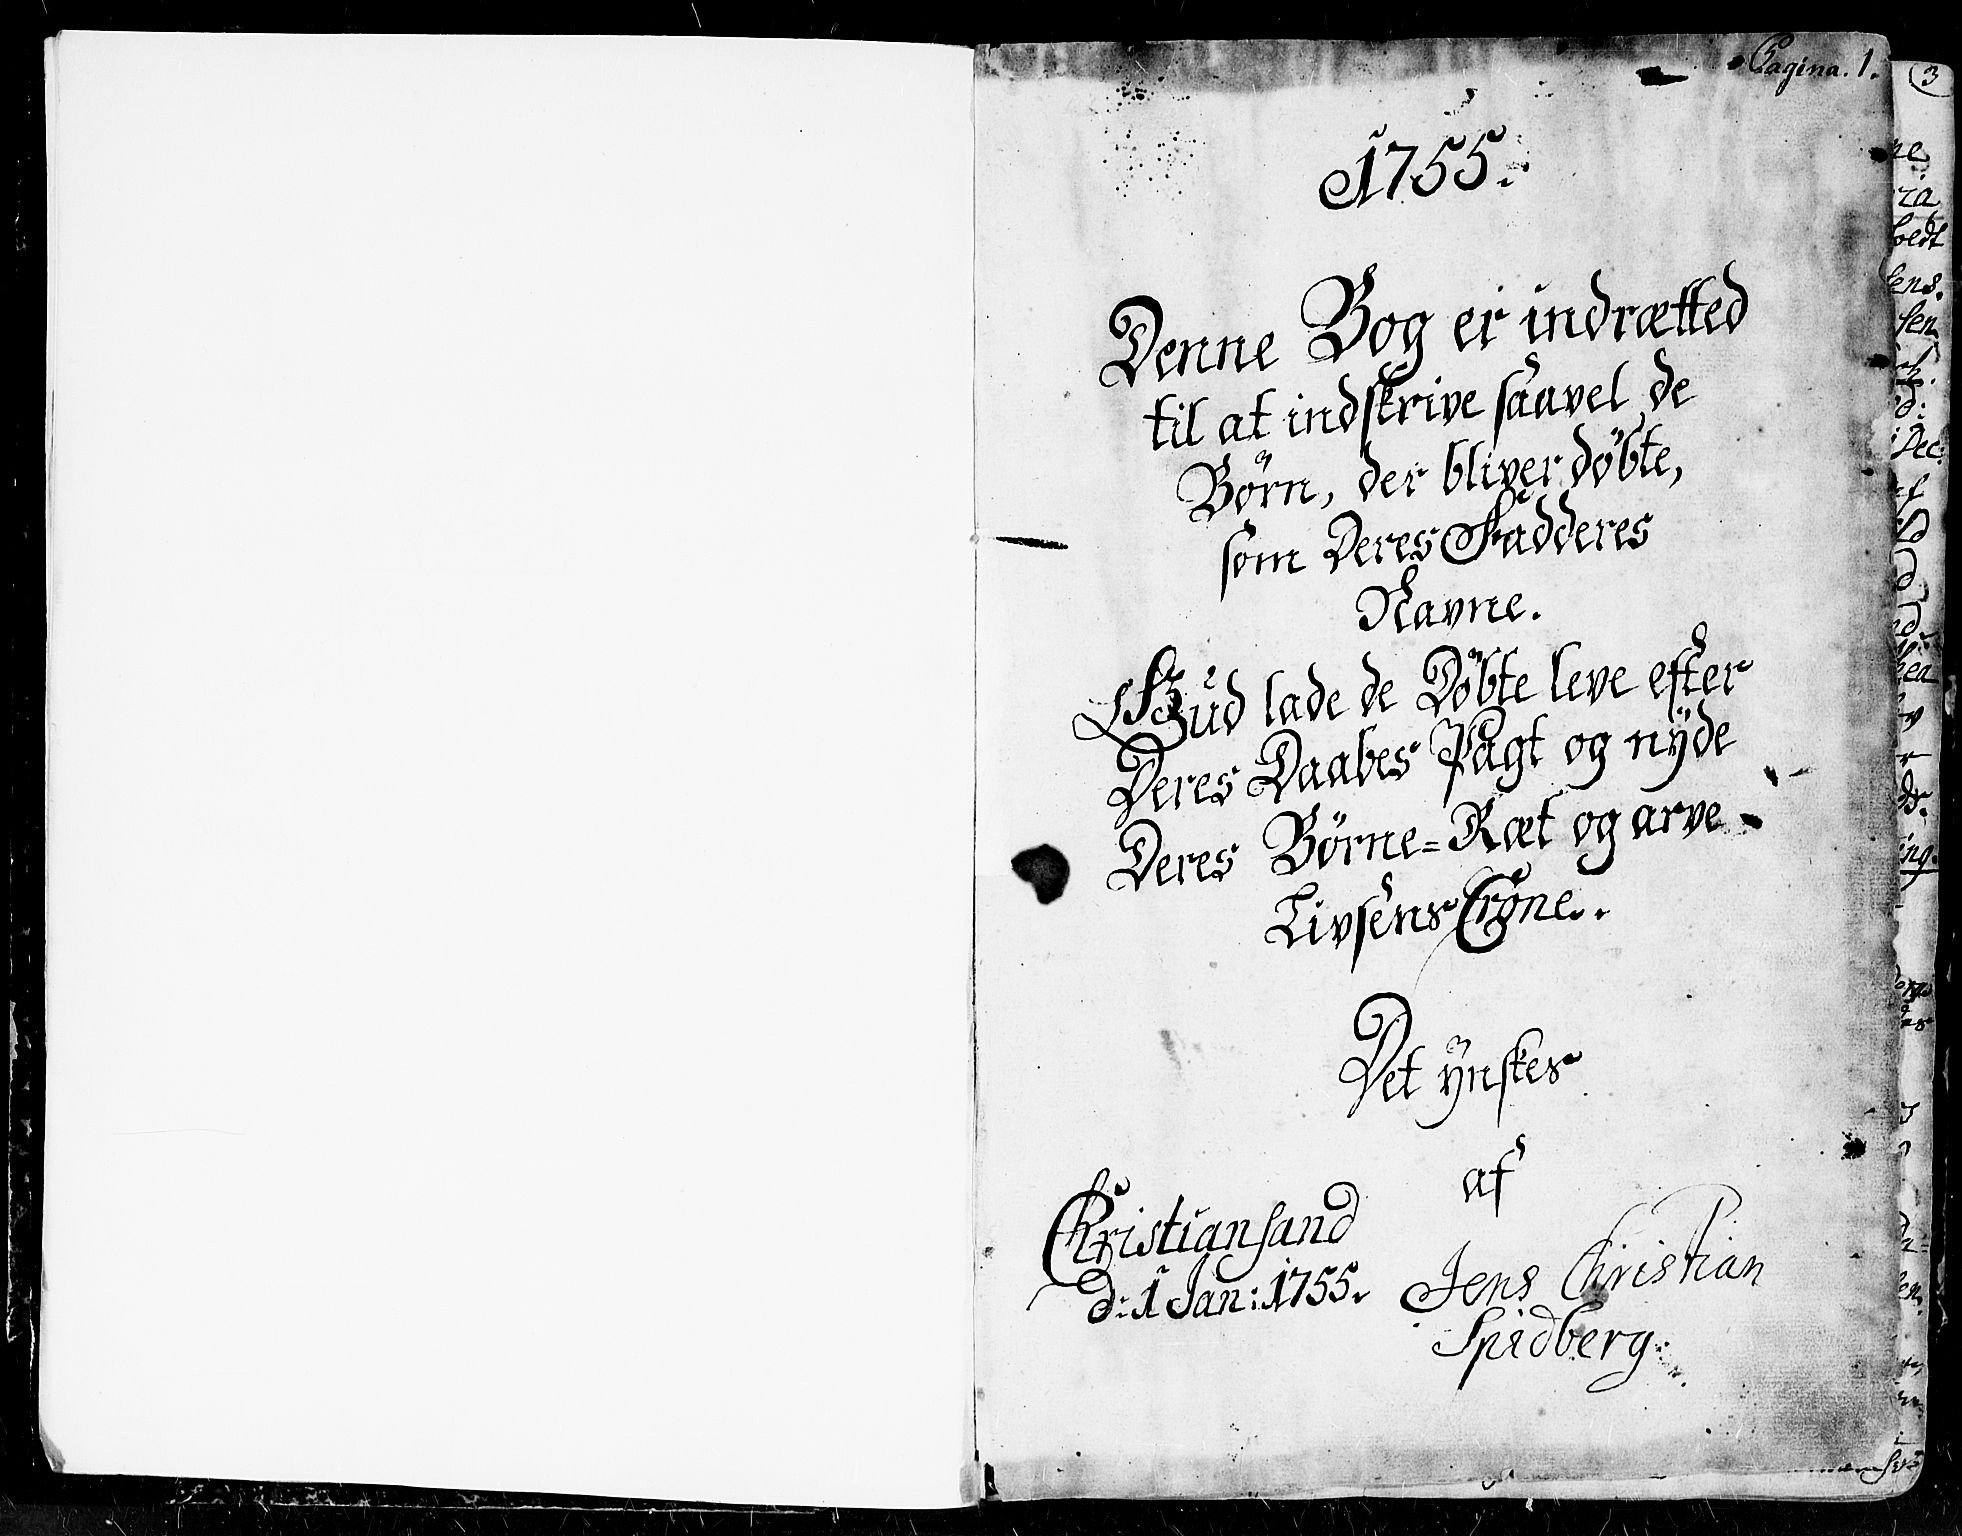 Pagina. 1.
1755.
Denne Bog er indrætted
til at indskrive saavel de
Børn, der bliver døbte,
som Deres Fadderes
Navne.
Gud lade de Døbte leve efter
Deres Daabes Pagt og nÿde
Deres Børne=Ræt og arve
Livsens Crone.
Det ÿnskes
af
Christiansand
d: 1 Jan: 1755.
Jens Christian
Spidberg.
3